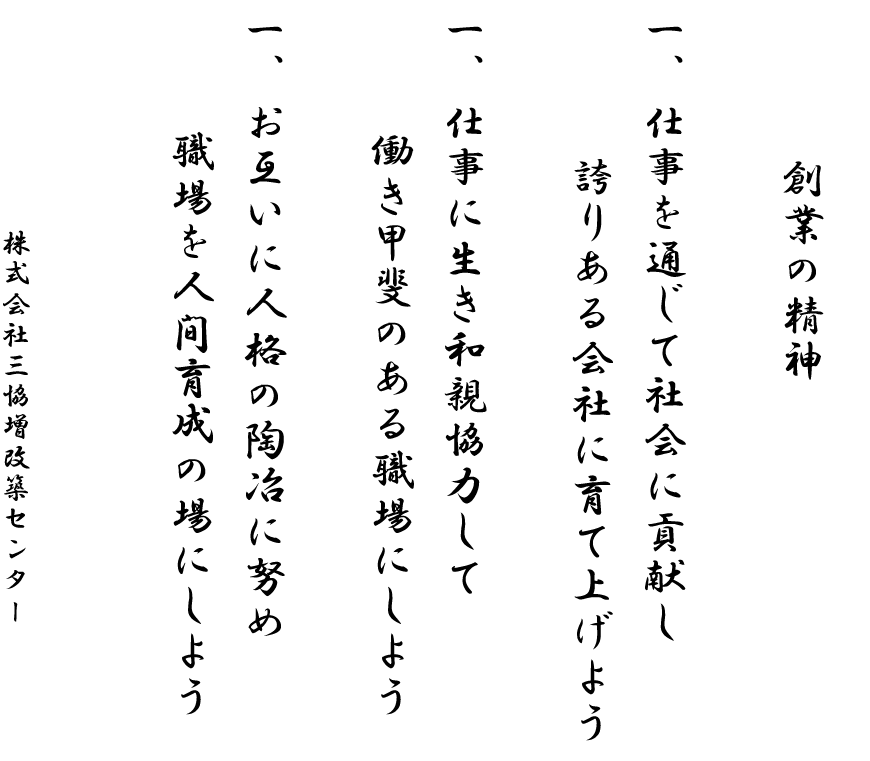 創業の精神
一、仕事を通じて社会に貢献し
誇りある会社に育て上げよう
一、仕事に生き和親協力して
働き甲斐のある職場にしよう
一、お互いに人格の陶冶に努め
職場を人間育成の場にしよう
株式会社三協増改築センター